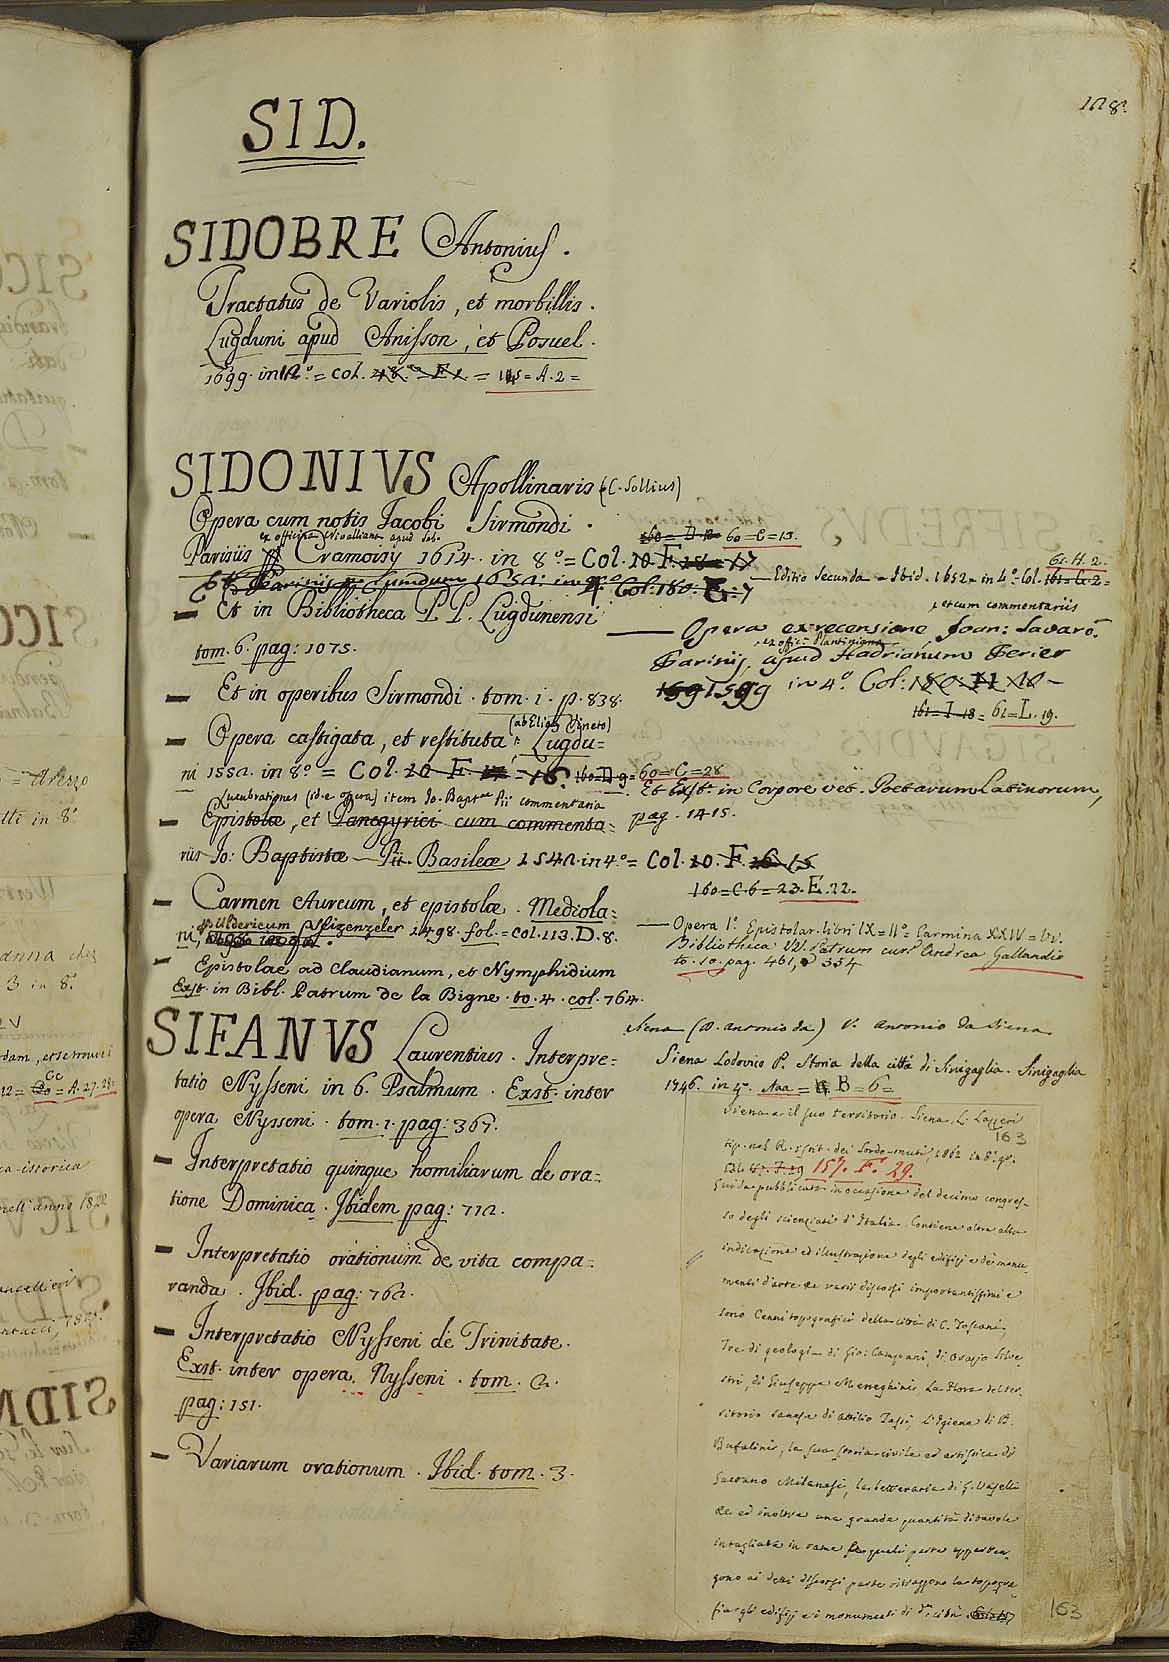 128.
SID.
SIDOBRE Antonius.
Tractatus de Variolis, et morbillis.
Lugduni apud Anisson, et Posuel.
1699. in 12.° = Col. = 115 = A. 2 =
SIDONIVS Apollinaris (C. Sollius)
Opera cum notis Jacobi Sirmondi.
ex officina Nivelliana apud Seb.
Parisiis Cramoisy 1614. in 8.° = Col. 10 F. 18 = 17
160 = D. 12 60 = C = 13.
Et in Bibliotheca P P. Lugdunensi
tom. 6. pag: 1075.
Et in operibus Sirmondi. tom. 1. p. 838.
Opera castigata, et restituta (ab Elia Vineto) Lugdu=
ni 1552. in 8.° = Col. 10 F. = 16. 160 = D 9 = 60 = C = 28
Lucubrationes (id. e opera) item Jo. Bapt.ae Pii commentaria
Epistolæ, et Panegyrici cum commenta=
riis Jo: Baptistæ Pii. Basileæ 1542. in 4.° = Col. 10. F. 16 15
160 = C. 6 = 23. E. 22.
Carmen Aureum, et epistolæ. Mediola=
ni, p. Uldericum Scizenzeler 1498. fol. = Col. 113. D. 8.
Epistolae ad Claudianum, et Nymphidium
Exst. in Bibl. Patrum de la Bigne. to. 4. col. 764.
Editio secunda = Ibid. 1652 = in 4.° Col. 161 = G. 2 =
61. H. 2.
, et cum commentariis
Opera ex recensione Joan: Savaro.
, ex offic. Plantiniana
Parisiis, apud Hadrianum Perier
1591599 in 4.° Col: 180. H 10 -
161 = I. 18 = 61 = L. 19.
Et Exst. in Corpore vet. Poetarum Latinorum,
pag. 1415.
Opera I.° Epistolar. libri IX = II.° Carmina XXIV =
Bibliotheca VV. Patrum cura Andrea Gallandio
to. 10. pag. 461, 554
SIFANVS Laurentius. Interpre=
tatio Nysseni in 6. Psalmum. Exst. inter
opera Nysseni. tom. 1. pag: 367.
Interpretatio quinque homiliarum de ora=
tione Dominica. Ibidem pag: 712.
Interpretatio orationum de vita compa=
randa. Ibid. pag: 762.
Interpretatio Nysseni de Trinitate.
Exst. inter opera Nysseni. tom. 2.
pag: 151.
Variarum orationum. Ibid. tom. 3.
Siena (D. Antonio da) V. Antonio da Siena
Siena Lodovico P. Storia della città di Sinigaglia. Sinigaglia
1746. in 4.° = B = 6 =
Siena e il suo territorio. Siena, L. Lazzeri
163
tip. nel R. istit. dei Sordo-muti, 1862 in 8.° gr.
157. F. 29.
Guida pubblicata in occasione del decimo congres-
so degli scienziati d'Italia. Contiene oltre alla
indicazione ed illustrazione degli edifizj e dei monu-
menti d'arte varii discorsi importantissimi e
sono Cenni topografici della città di C. Toscani
Tre di geologia di Gio: Campani, di Orazio Silve-
stri, di Giuseppe Meneghini. La Flora del ter-
ritorio sanese di Attilio Tassi, L'Igiene di B.
Bufalini, la sua storia civile ed artistica di
Gaetano Milanesi, la letteraria di G. Vaselli
ed inoltre una grande quantità di tavole
intagliate in rame le quali parte apparten-
gono ai detti discorsi parte ritraggono la topogra-
fia gli edifizj e i monumenti di d.a città.
163